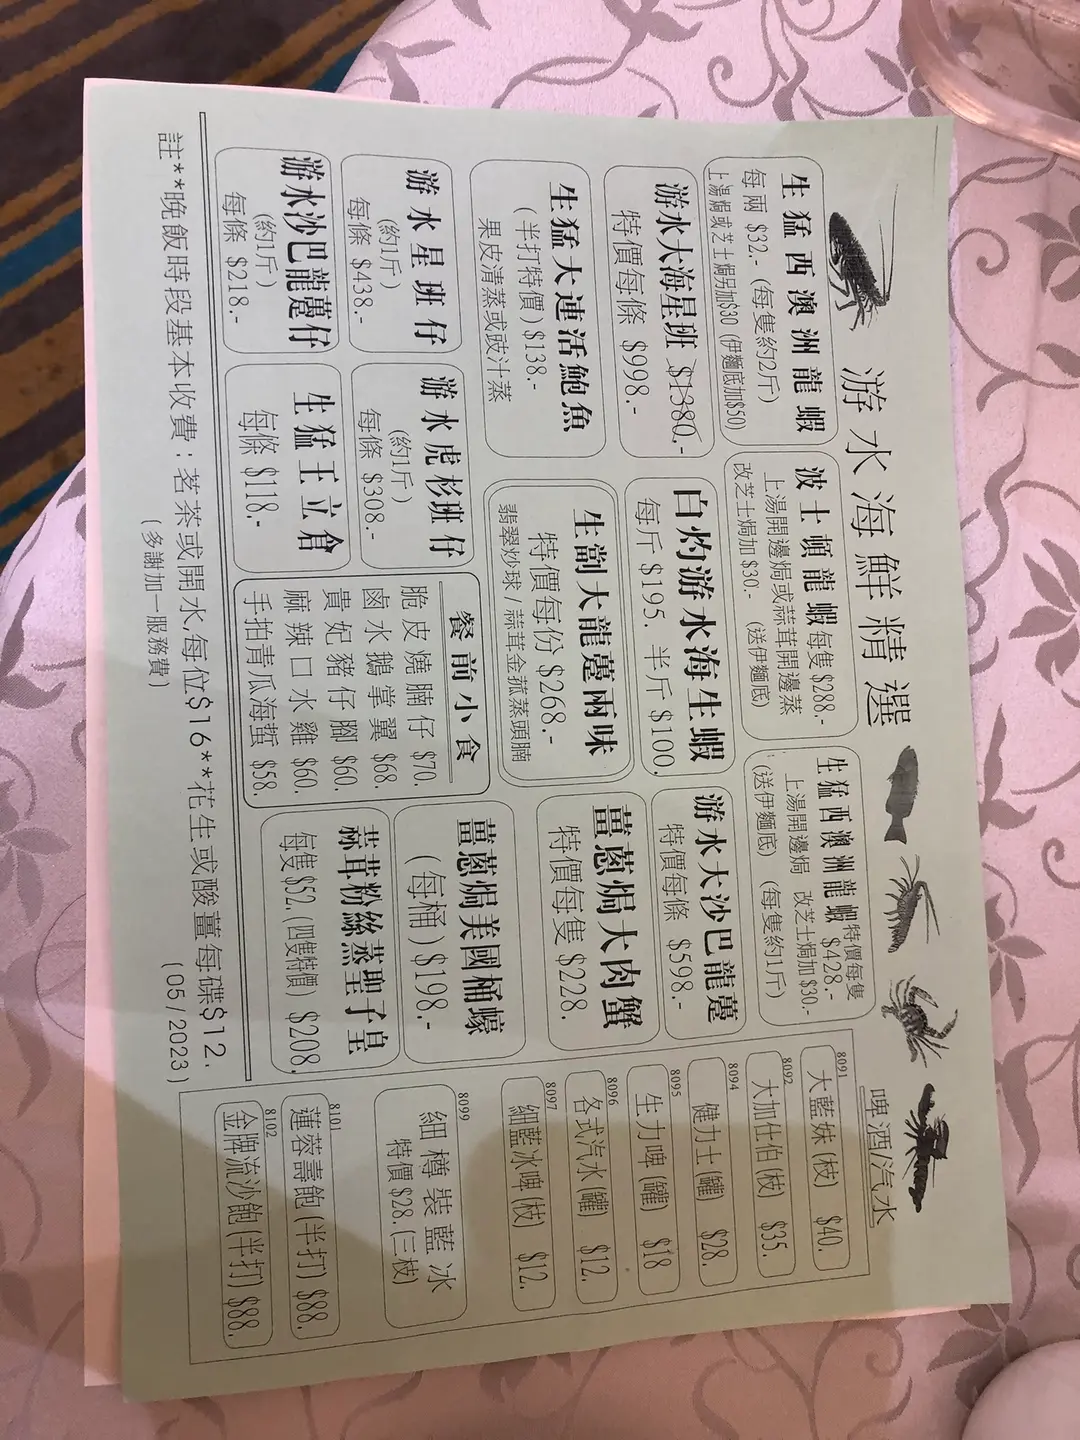 游水海鮮精選
生猛西澳洲龍蝦
每兩 $32.- (每隻約2斤)
上湯焗或芝士焗另加$30 (伊麵底加$50)
波士頓龍蝦 每隻 $288.-
上湯開邊焗或蒜茸開邊蒸
改芝士焗加 $30.- (送伊麵底)
生猛西澳洲龍蝦 特價每隻 $428.-
上湯開邊焗 改芝士焗加$30.-
(送伊麵底) (每隻約1斤)
游水大海星班 $1380.-
特價每條 $998.-
白灼游水海生蝦
每斤 $195. 半斤 $100.
游水大沙巴龍躉
特價每條 $598.-
生猛大連活鮑魚
(半打特價) $138.-
果皮清蒸或豉汁蒸
生劏大龍躉兩味
特價每份 $268.-
翡翠炒球/蒜茸金菰蒸頭腩
薑蔥焗大肉蟹
特價每隻 $228.
游水星班仔
(約1斤)
每條 $438.-
游水虎杉班仔
(約1斤)
每條 $308.-
餐前小食
脆皮燒腩仔 $70.
鹵水鵝掌翼 $68.
貴妃豬仔腳 $60.
麻辣口水雞 $60.
手拍青瓜海蜇 $58.
薑蔥焗美國桶蠔
(每桶) $198.-
游水沙巴龍躉仔
(約1斤)
每條 $218.-
生猛王立倉
每條 $118.-
蒜茸粉絲蒸聖子皇
每隻 $52. (四隻特價) $208.
註**晚飯時段基本收費：茗茶或開水,每位$16**花生或酸薑每碟$12.
(多謝加一服務費)
(05/2023)
啤酒/汽水
8091
大藍妹(枝) $40.
8092
大加仕伯(枝) $35.
8094
健力士(罐) $28.
8095
生力啤(罐) $18
8096
各式汽水(罐) $12.
8097
細藍冰啤(枝) $12.
8099
細樽裝藍冰
特價 $28.(三枝)
8101
蓮蓉壽飽(半打) $88.
8102
金牌流沙飽(半打) $88.